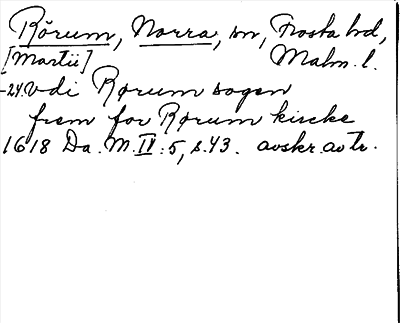 Rörum, Norra, sn, Frosta hd,
[Martii] Malm. l.
-24. Vdi Rørum sogen
frem for Rørum kircke
1618 Da. M. IV: 5, s. 43. avskr. av tr.